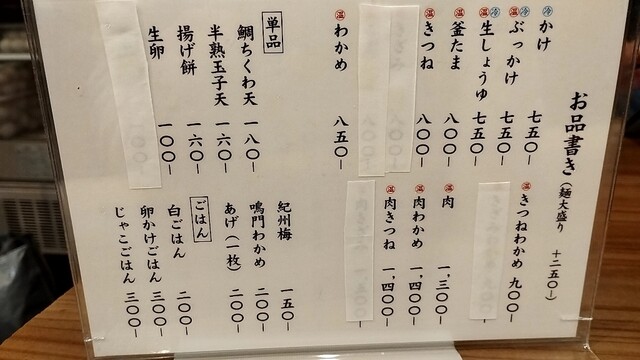 お品書き(麺大盛り 十二五〇ー)
冷 かけ 七五〇ー
冷 温 ぶっかけ 七五〇ー
冷 温 生しょうゆ 七五〇ー
温 釜たま 八〇〇ー
温 きつね 八〇〇ー
温 わかめ 八五〇ー
温 きつねわかめ 九〇〇ー
温 肉 一、三〇〇ー
温 肉わかめ 一、四〇〇ー
温 肉きつね 一、四〇〇ー
単品
鯛ちくわ天 一八〇ー
半熟玉子天 一六〇ー
揚げ餅 一六〇ー
生卵 一〇〇ー
紀州梅 一五〇ー
鳴門わかめ 二〇〇ー
あげ(一枚) 二〇〇ー
ごはん
白ごはん 二〇〇ー
卵かけごはん 三〇〇ー
じゃこごはん 三〇〇ー